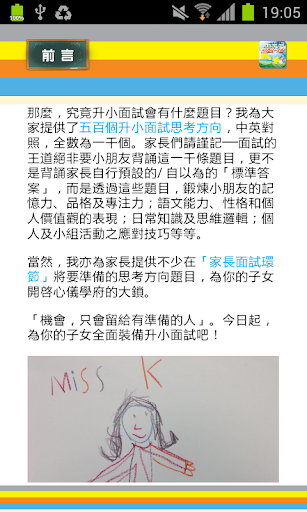 100%
19:05
前言
那麼，究竟升小面試會有什麼題目？我為大
家提供了五百個升小面試思考方向，中英對
照，全數為一千個。家長們請謹記──面試的
王道絕非要小朋友背誦這一千條題目，更不
是背誦家長自行預設的/ 自以為的「標準答
案」，而是透過這些題目，鍛煉小朋友的記
憶力、品格及專注力；語文能力、性格和個
人價值觀的表現；日常知識及思維邏輯；個
人及小組活動之應對技巧等等。
當然，我亦為家長提供不少在「家長面試環
節」將要準備的思考方向題目，為你的子女
開啓心儀學府的大鎖。
「機會，只會留給有準備的人」。今日起，
為你的子女全面裝備升小面試吧！
Miss K